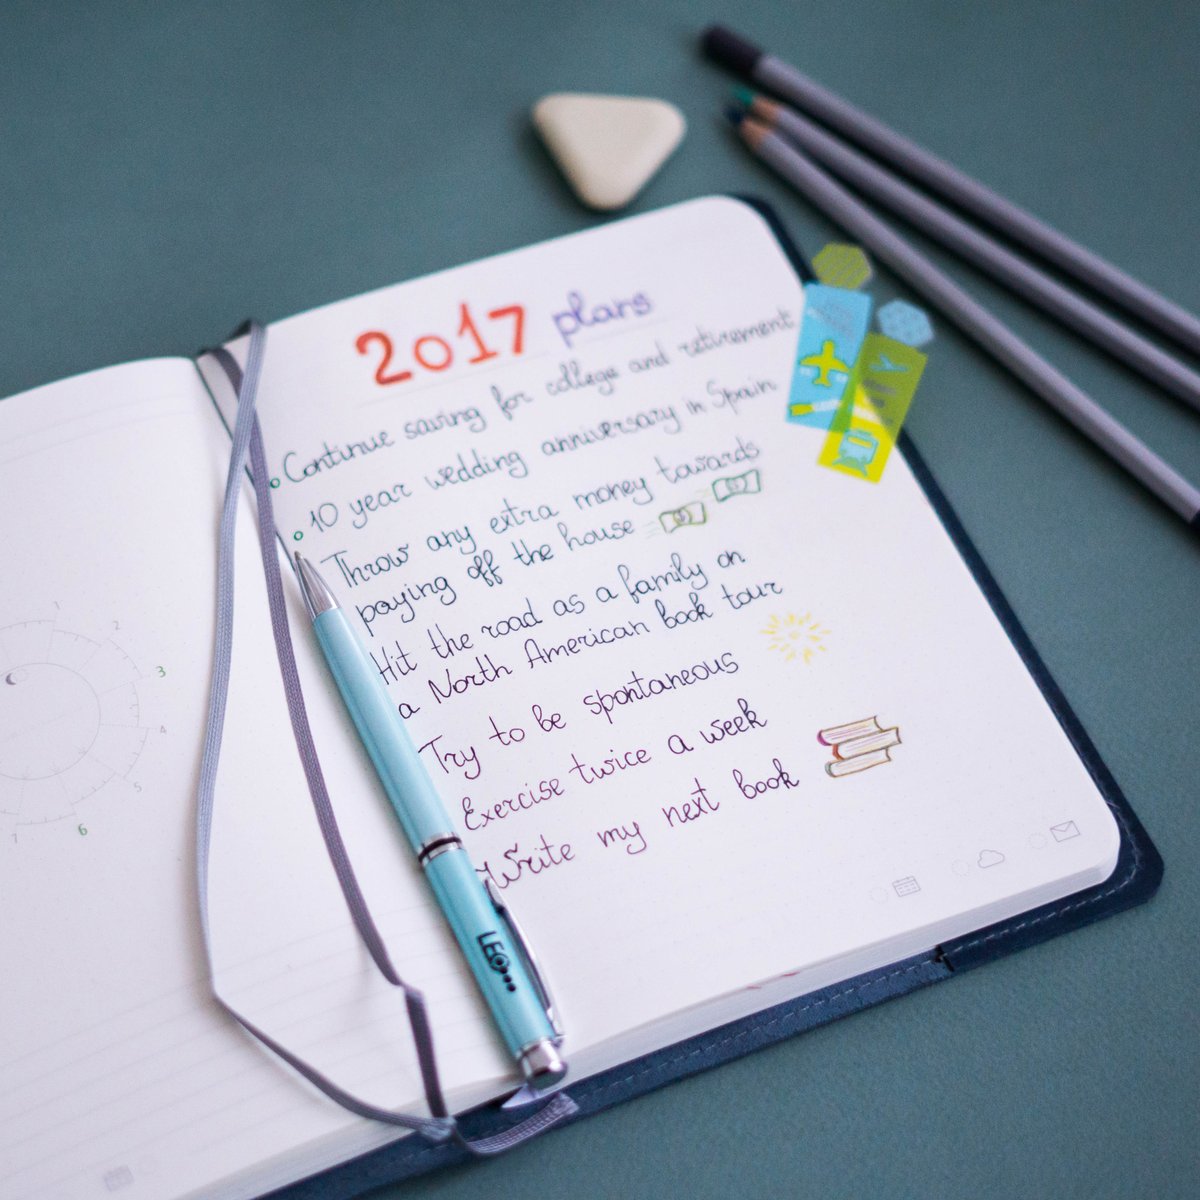 2017 plans
Continue saving for college and retirement
10 year wedding anniversary in Spain
Throw any extra money towards
paying off the house
Hit the road as a family on
a North American book tour
Try to be spontaneous
Exercise twice a week
Write my next book
LEO
1
2
3
4
5
6
7